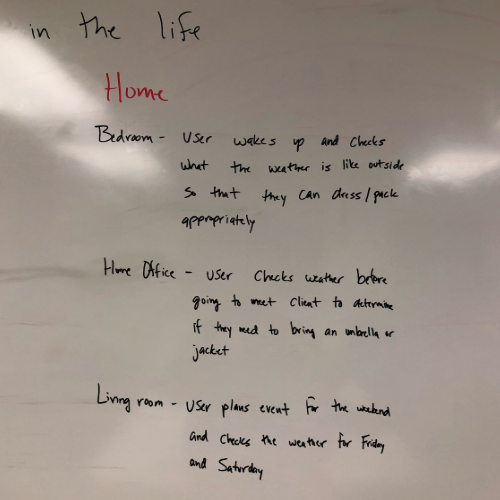 in the life
Home
Bedroom - User wakes up and checks
what the weather is like outside
so that they can dress/pack
appropriately
Home Office - User checks weather before
going to meet client to determine
if they need to bring an umbrella or
jacket
Living room - User plans event for the weekend
and checks the weather for Friday
and Saturday